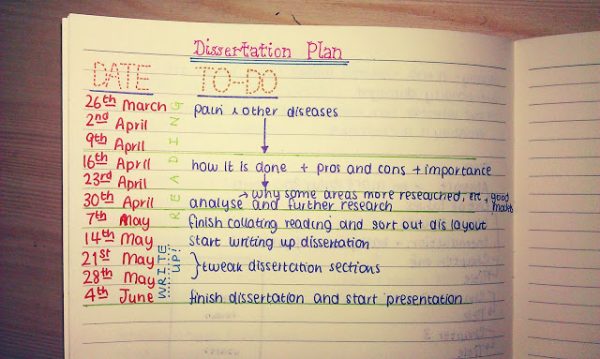 Dissertation Plan
DATE TO-DO
26th March pain & other diseases
2nd April
9th April
16th April how it is done + pros and cons + importance
23rd April
→ why some areas more researched, etc + good models
30th April analyse and further research
7th May finish collating reading and sort out dis layout
14th May start writing up dissertation
21st May } tweak dissertation sections
28th May
4th June finish dissertation and start presentation
READING
WRITE UP!